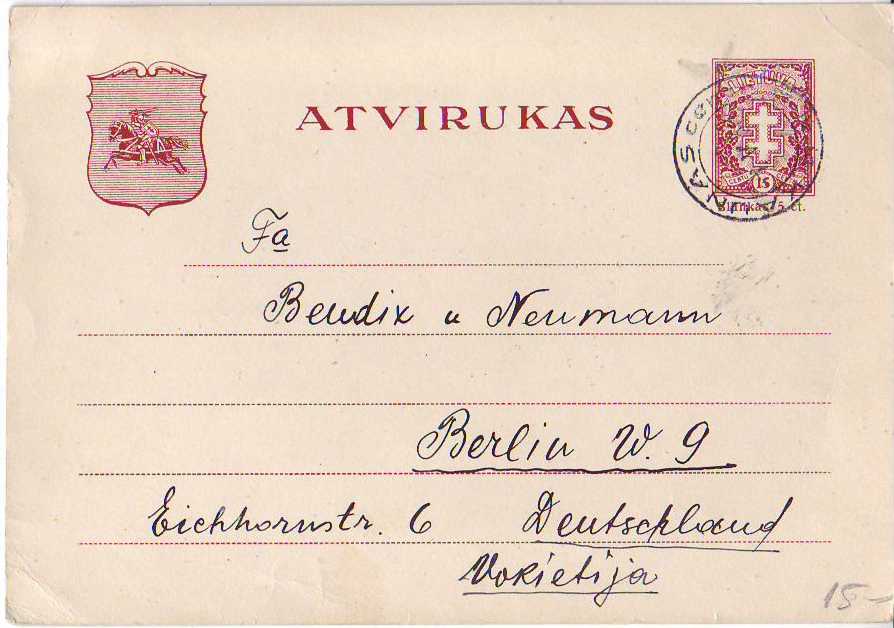 ATVIRUKAS
LIETUVA
15
KAUNAS
Blankas 5 ct.
Fa
Bendix u Neumann
Berlin W. 9
Eichhornstr. 6 Deutschland
Vokietija
15-